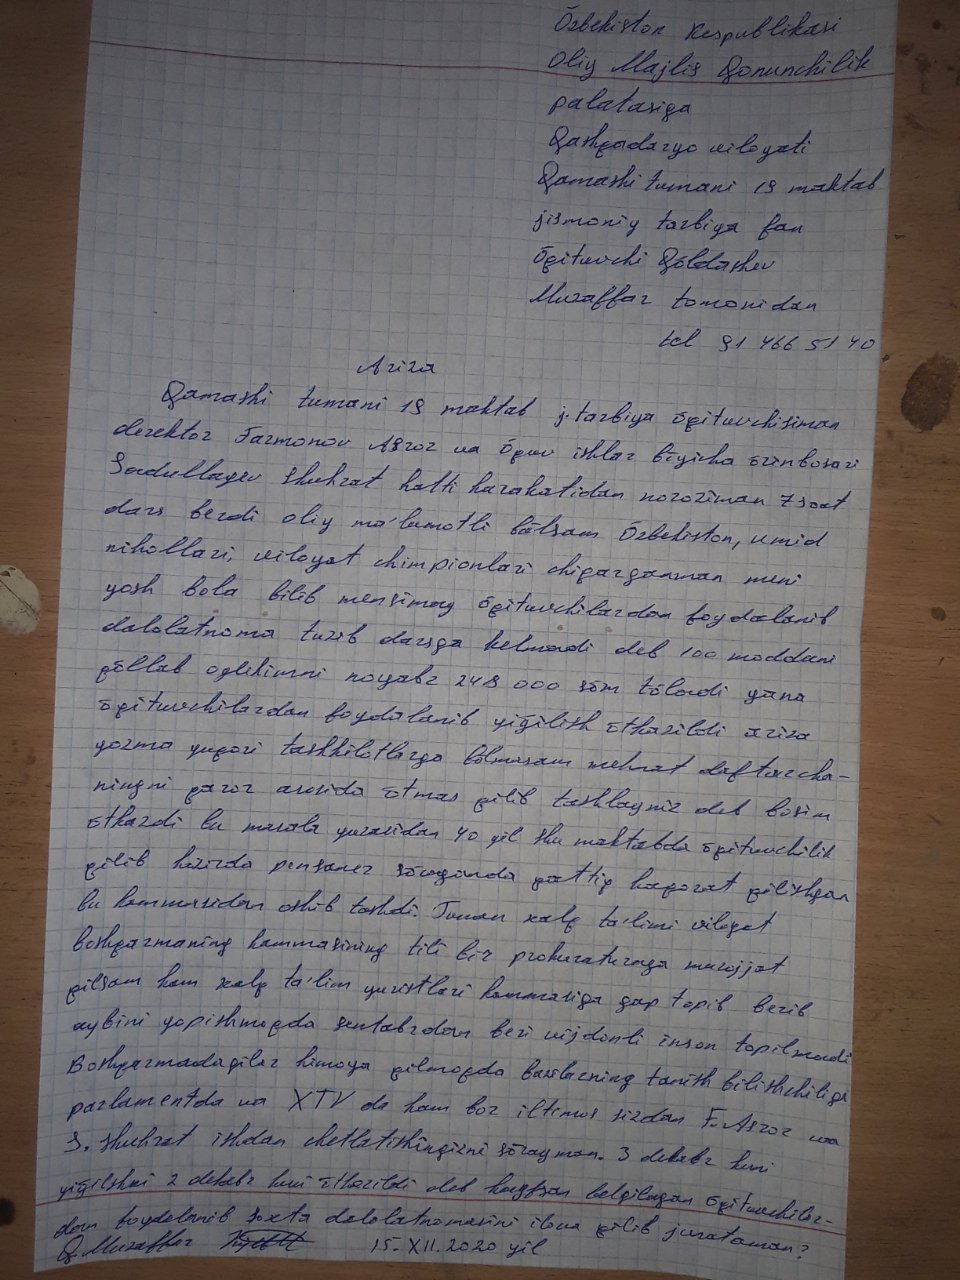 Özbekiston Respublikasi
Oliy Majlis Qonunchilik
palatasiga
Qashqadaryo viloyati
Qamashi tumani 19 maktab
jismoniy tarbiya fan
öqituvchi Qöldashev
Muzaffar tomonidan
tel 91 466 51 40
Ariza
Qamashi tumani 19 maktab j.tarbiya öqituvchisiman
derektor Farmonov Asror va öquv ishlar böyicha örinbosari
Sadullayev Shuhrat hatti harakatidan noroziman 7 soat
dars berdi oliy ma'lumotli bölsam Özbekiston, umid
nihollari, viloyat chimpionlari chiqarganman meni
yosh bola bilib mensimay öqituvchilardan foydalanib
dalolatnoma tuzib darsga kelmadi deb 100 moddani
qöllab oylikimni noyabr 248 000 söm töladi yana
öqituvchilardan foydalanib yiğilish ötkazildi ariza
yozma yuqori tashkilotlarga bölmasam mehnat daftarcha-
ningni qaror asosida ötmas qilib tashlaymiz deb bosim
ötkazdi bu masala yuzasidan 40 yil shu maktabda öqituvchilik
qilib hozirda pensaner söraganda qattiq haqorat qilishgan
bu hammasidan oshib toshdi. Tuman xalq ta'limi viloyat
boshqarmaning hammasining tili bir prokuraturaga murojjat
qilsam ham xalq ta'lim yuristlari hammasiga gap topib berib
aybini yopishmoqda sentabrdan beri vijdonli inson topilmadi
Boshqarmadagilar himoya qilmoqda bularning tanish bilishchiligi
parlamentda va XTV da ham bor iltimos sizdan F. Asror va
S. Shuhrat ishdan chetlatishingizni sörayman. 3 dekabr kuni
yiğilishni 2 dekabr kuni ötkazildi deb belgilagan öqituvchilar-
dan foydalanib soxta dalolatnomasini ilova qilib junataman?
Q. Muzaffar 15. XII. 2020 yil